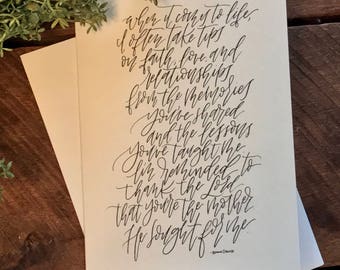 when it comes to life,
I often take tips
on faith, love, and
relationships
from the memories
you've shared
and the lessons
you've taught me
I'm reminded to
thank the Lord
that you're the mother
He sought for me